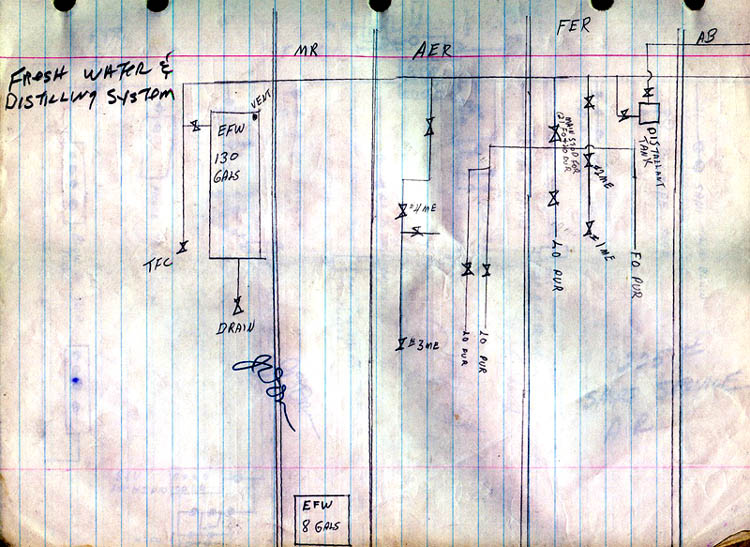 FRESH WATER &
DISTILLING SYSTEM
MR
AER
FER
AB
VENT
EFW
130
GALS
TFC
DRAIN
#4 ME
#3 ME
LO PUR
LO PUR
MAIN STUD FOR
LO PUR
#2 ME
#1 ME
FO PUR
DISTILLANT
TANK
EFW
8 GALS